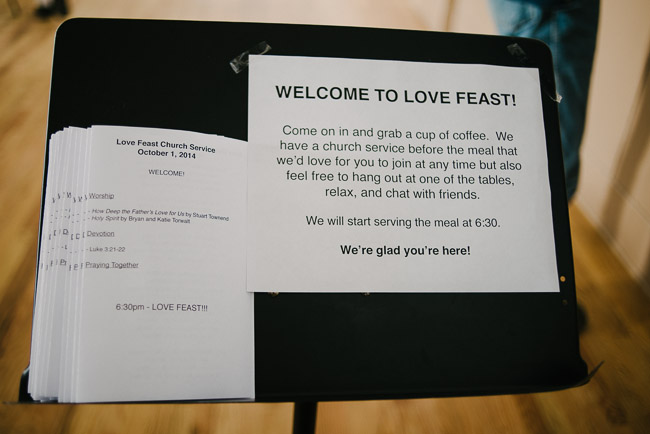 Love Feast Church Service
October 1, 2014
WELCOME!
Worship
- How Deep the Father's Love for Us by Stuart Townend
- Holy Spirit by Bryan and Katie Torwalt
Devotion
- Luke 3:21-22
Praying Together
6:30pm - LOVE FEAST!!!
WELCOME TO LOVE FEAST!
Come on in and grab a cup of coffee. We
have a church service before the meal that
we'd love for you to join at any time but also
feel free to hang out at one of the tables,
relax, and chat with friends.
We will start serving the meal at 6:30.
We're glad you're here!